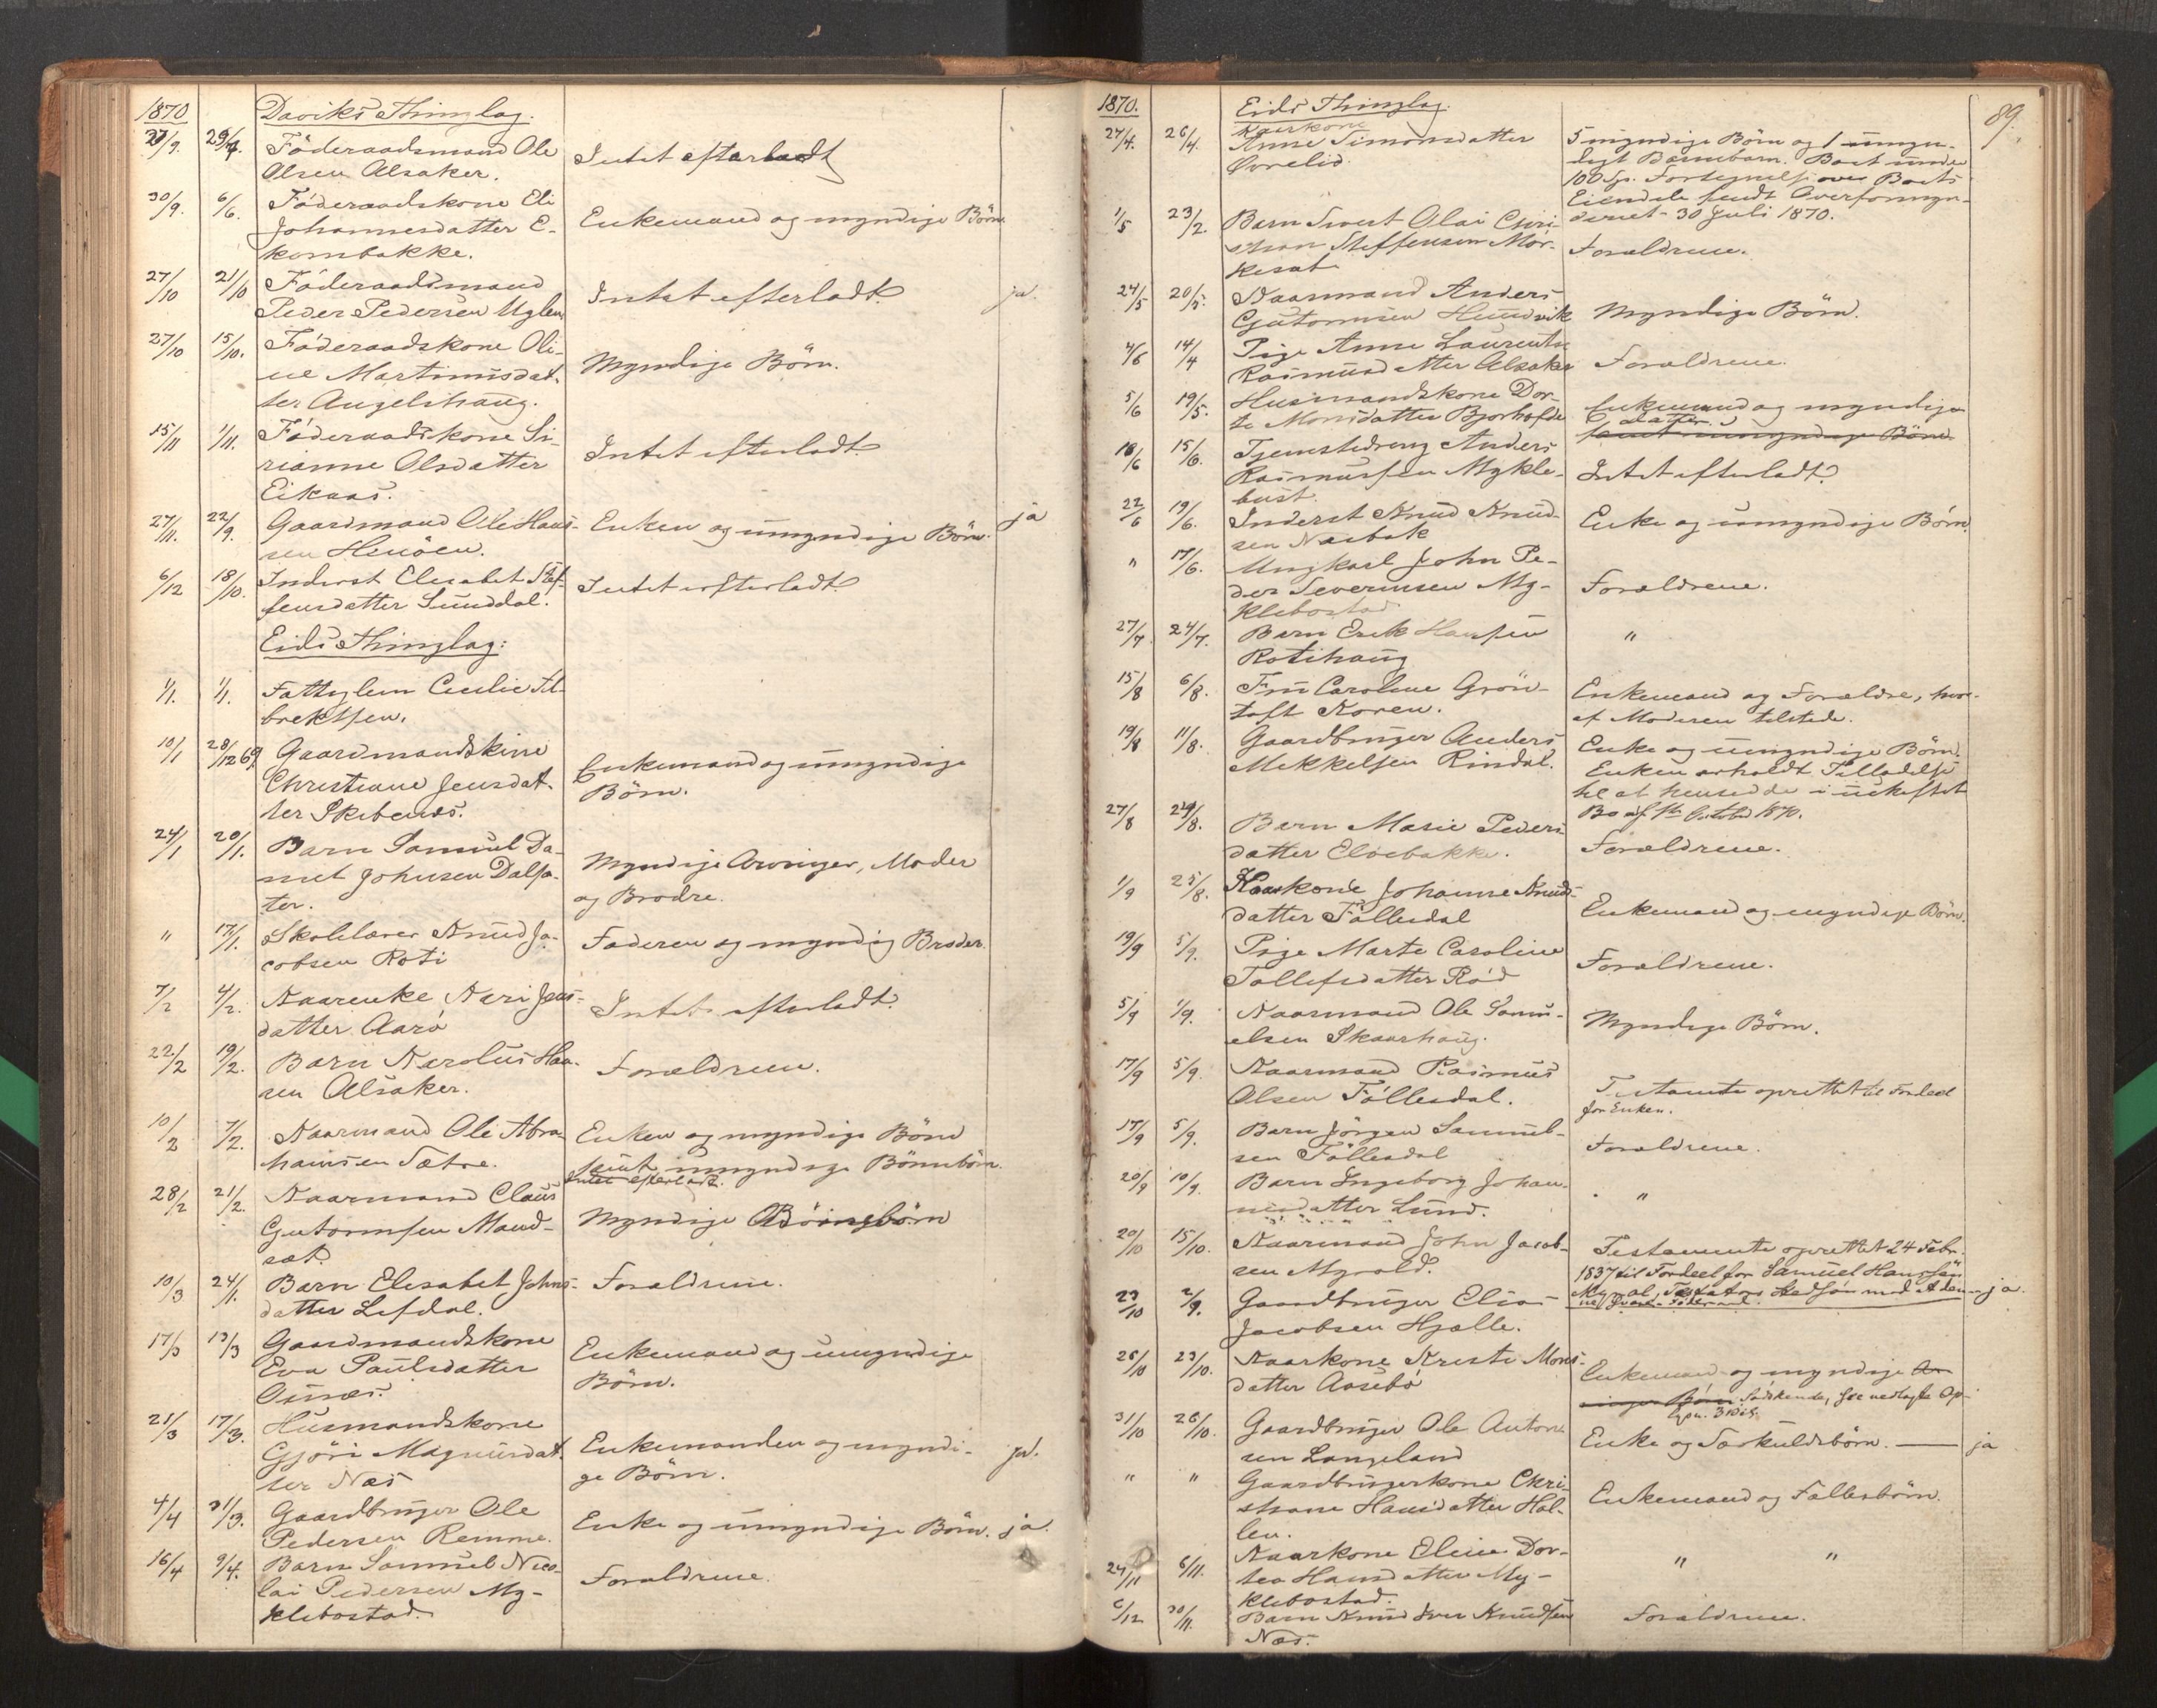 1870 Daviks Thinglag.
27/9. 29/7. Föderaadsmand Ole
Olsen Alsaker. Intet efterladt
30/9. 6/6. Föderaadskone Eli
Johannesdatter E-
kornbakke. Enkemand og myndige Börn.
27/10 21/10 Föderaadsmand
Peder Pedersen Uglen Intet efterladt. ja.
27/10 15/10. Föderaadskone Oli-
ne Martinusdat-
ter Angelshaug. Myndige Börn.
15/11 1/11. Föderaadskone Si-
rianne Olsdatter
Eikaas. Intet efterladt
27/11. 22/9. Gaardmand Ole Han-
sen Henöen. Enken og umyndige Börn. ja
6/12 18/10. Inderst Elisabet Stef-
fensdatter Sunddal. Intet efterladt
Eids Thinglag:
1/1. 1/1. Fattiglem Cecilie
brektsen.
10/1 28/12 69 Gaardmandskone
Christiane Jensdat-
ter Skibenes. Enkemand og umyndige
Börn.
24/1 20/1. Barn Samuel Da-
niel Johnsen Dalsæ-
ter. Myndige Arvinger, Moder
og Brodre.
" 17/1. Skolelærer Knud Ja-
cobsen Roti Faderen og myndig Broder.
7/2 4/2. Kaarenke Kari Jens-
datter Aarö Intet efterladt.
22/2 19/2. Barn Karolus Han-
sen Alsaker. Forældrene.
10/2 7/2. Kaarmand Ole Abra-
hamsen Sætre. Enken og myndige Börn
samt umyndige Börnebörn.
Intet efterladt.
28/2 21/2. Kaarmand Claus
Guttormsen Mand-
sæt. Myndige Börnebörn
10/3 24/1. Barn Elisabet Johns-
datter Lefdal. Forældrene.
17/3 13/3 Gaardmandskone
Eva Paulsdatter
Osnes. Enkemand og umyndige
Börn.
21/3 17/3. Husmandskone
Gjöri Magnusdat-
ter Næs Enkemanden og myndi-
ge Börn. ja.
4/4 31/3. Gaardbruger Ole
Pedersen Remme. Enke og umyndige Börn. ja.
16/4 9/4. Barn Samuel Nico-
lai Pedersen My-
klebostad. Forældrene.
89.
1870. Eids Thinglag.
27/4. 26/4. Kaarkone
Anne Simonsdatter
Övrelid. 5 myndige Börn og 1 umyn-
digt Barnebarn. Boet under
100 Sp. Fortegnelse over Boets
Eiendele sendt Overformyn-
deriet 30 Juli 1870.
1/5 23/2. Barn Sivert Olai Chri-
stian Steffensen Mor-
kesæt Forældrene.
24/5 20/5. Kaarmand Anders
Guttormsen Hundvik Myndige Börn.
4/6 14/4 Pige Anne Laurentse
Rasmusdatter Alsaker Forældrene.
5/6 19/5. Husmandskone Dor-
te Monsdatter Bjorhofde Enkemand og myndige
Datter.
samt umyndige Börn.
18/6 15/6. Tjenstedreng Anders
Rasmussen Mykle-
bust. Intet efterladt.
22/6 19/6. Inderst Knud Knud-
sen Nasbak Enke og umyndige Börn.
" 17/6. Ungkarl John Pe-
der Severinsen My-
klebostad Forældrene.
27/7. 24/7. Barn Erik Hansen
Rotihaug "
15/8 6/8. Fru Caroline Grön-
toft Koren. Enkemand og Forældre, hvor-
af Moderen tilstede.
19/8 11/8. Gaardbruger Anders
Mekkelsen Rindal. Enke og umyndige Börn.
Enken erholdt Tilladelse
til at hensidde i uskiftet
Bo af October 1870.
27/8 24/8. Barn Marie Peders-
datter Elvebakke. Forældrene.
1/9 25/8. Kaarkone Johanne Knuds-
datter Föllesdal Enkemand og myndige Börn.
19/9 5/9. Pige Marte Caroline
Tollefsdatter Röd Forældrene.
5/9 1/9. Kaarmand Ole Samu-
elsen Skaarhaug. Myndige Börn.
17/9 5/9. Kaarmand Rasmus
Olsen Föllesdal. Testamente oprettet til Fordeel
for Enken.
17/9 5/9. Barn Jörgen Samuel-
sen Föllesdal Forældrene.
20/9 10/9. Barn Ingeborg Johan-
nesdatter Lund. "
20/10 15/10. Kaarmand John Jacob-
sen Myrold. Testamente oprettet 24 Febr.
1837 til Fordeel for Samuel Hanssön
Testators Stedsön med ja.
23/10 2/9. Gaardbruger Elias
Jacobsen Hjalle.
26/10 23/10. Kaarkone Kristi Mons-
datter Aasebö Enkemand og myndige Ar-
vinger Börn. Södskende, see vedlagte Op-
31/10 26/10. Gaardbruger Ole Anton-
sen Langeland Enke og Særkuldsbörn. — ja
" " Gaardbrugerkone Chri-
stiane Hansdatter Hal-
len. Enkemand og Fællesbörn.
24/11 6/11. Kaarkone Eline Dor-
tea Hansdatter My-
klebostad. " "
6/12 30/11. Barn Knud Iver Knudsen
Næs. Forældrene.